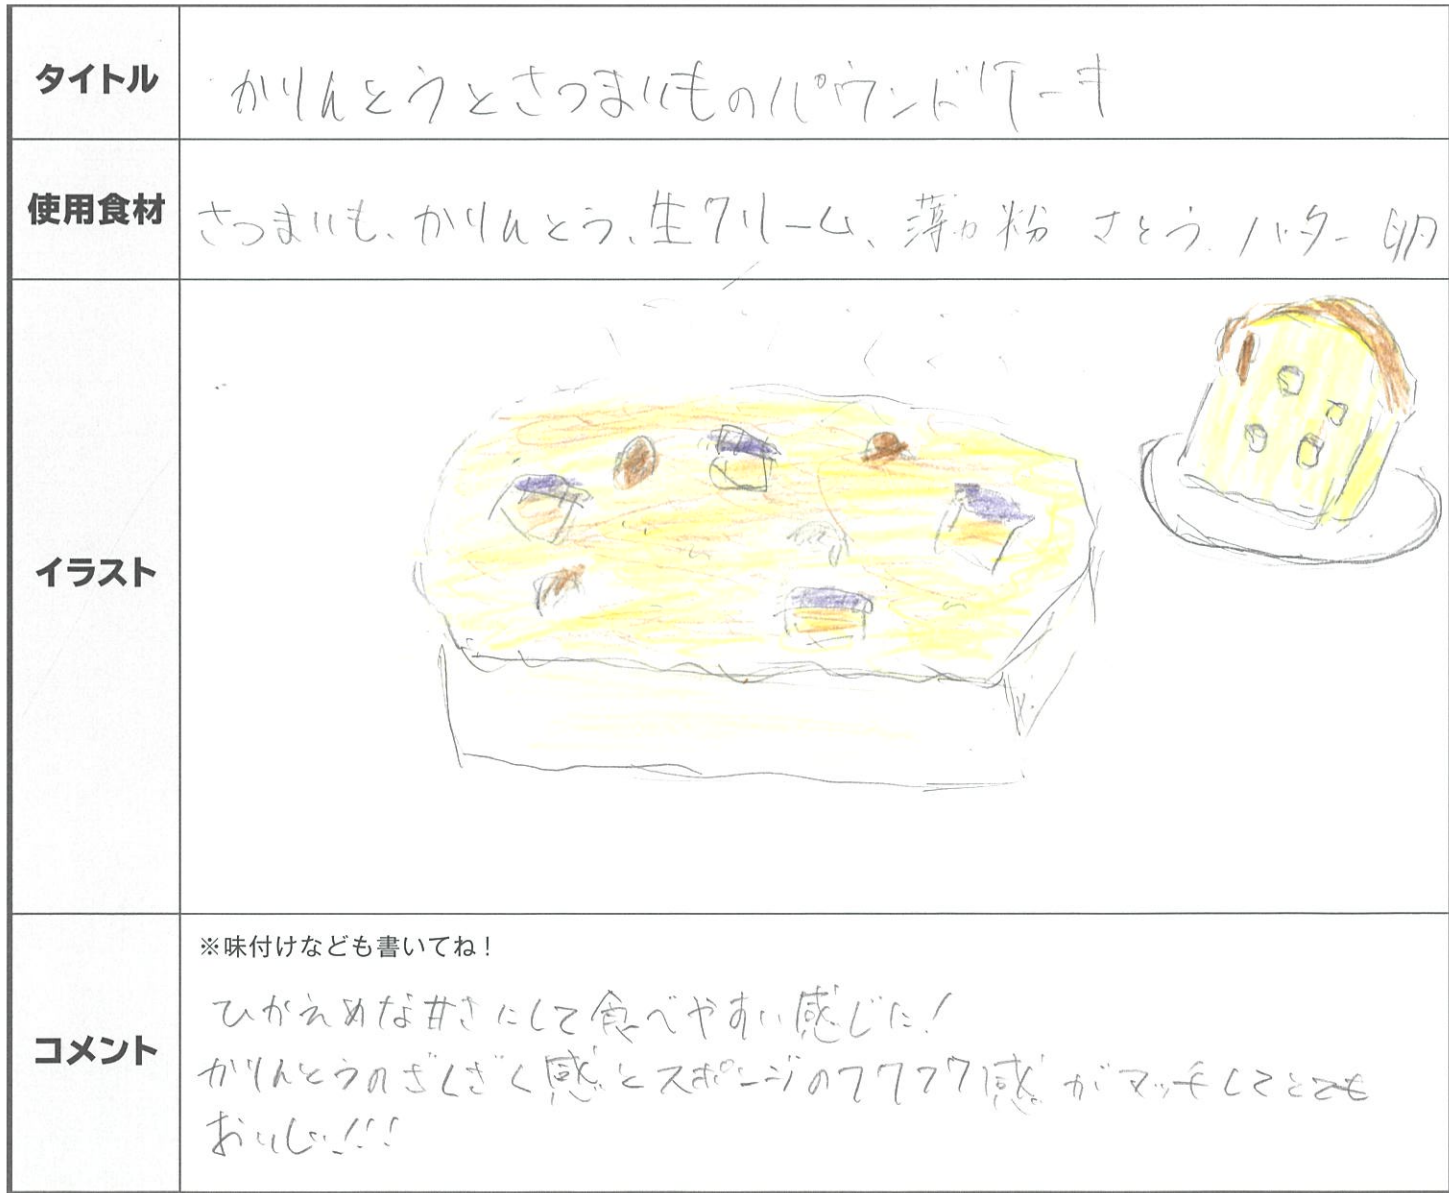 タイトル
かりんとうとさつまいものパウンドケーキ
使用食材
さつまいも、かりんとう、生クリーム、薄力粉 さとう、バター 卵
イラスト
コメント
※味付けなども書いてね!
ひかえめな甘さにして食べやすい感じに!
かりんとうのざくざく感とスポンジのフワフワ感がマッチしてとても
おいしい!!!